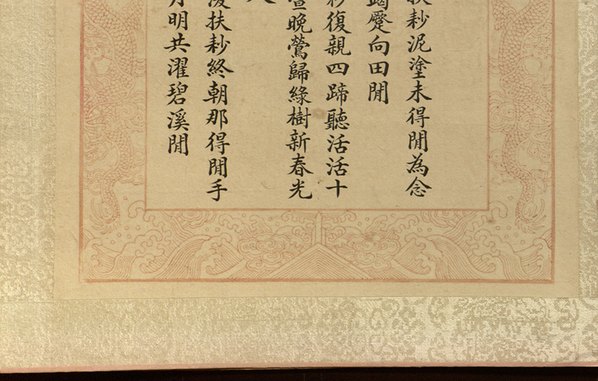 扶耖泥塗未得閒為念
向田閒
耖復親四蹄聽活活十
晚鶯歸綠樹新春光
扶耖終朝那得閒手
月明共濯碧溪閒